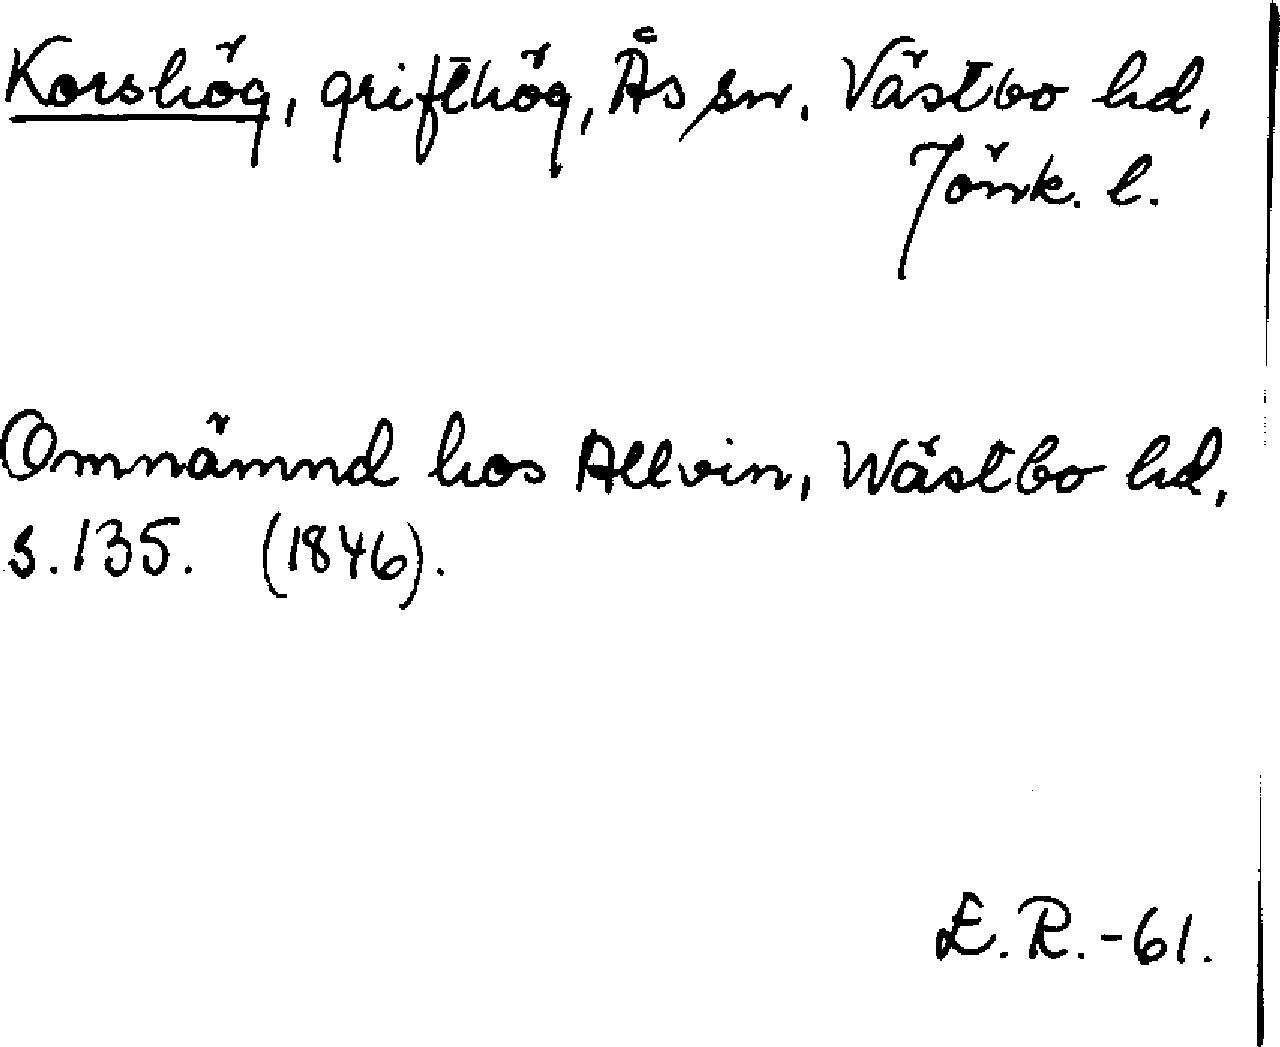 Korshög, grifthög, Ås sn. Västbo hd,
Jönk. l.
Omnämnd hos Allvin, Wästbo hd,
s. 135. (1846).
E. R. -61.